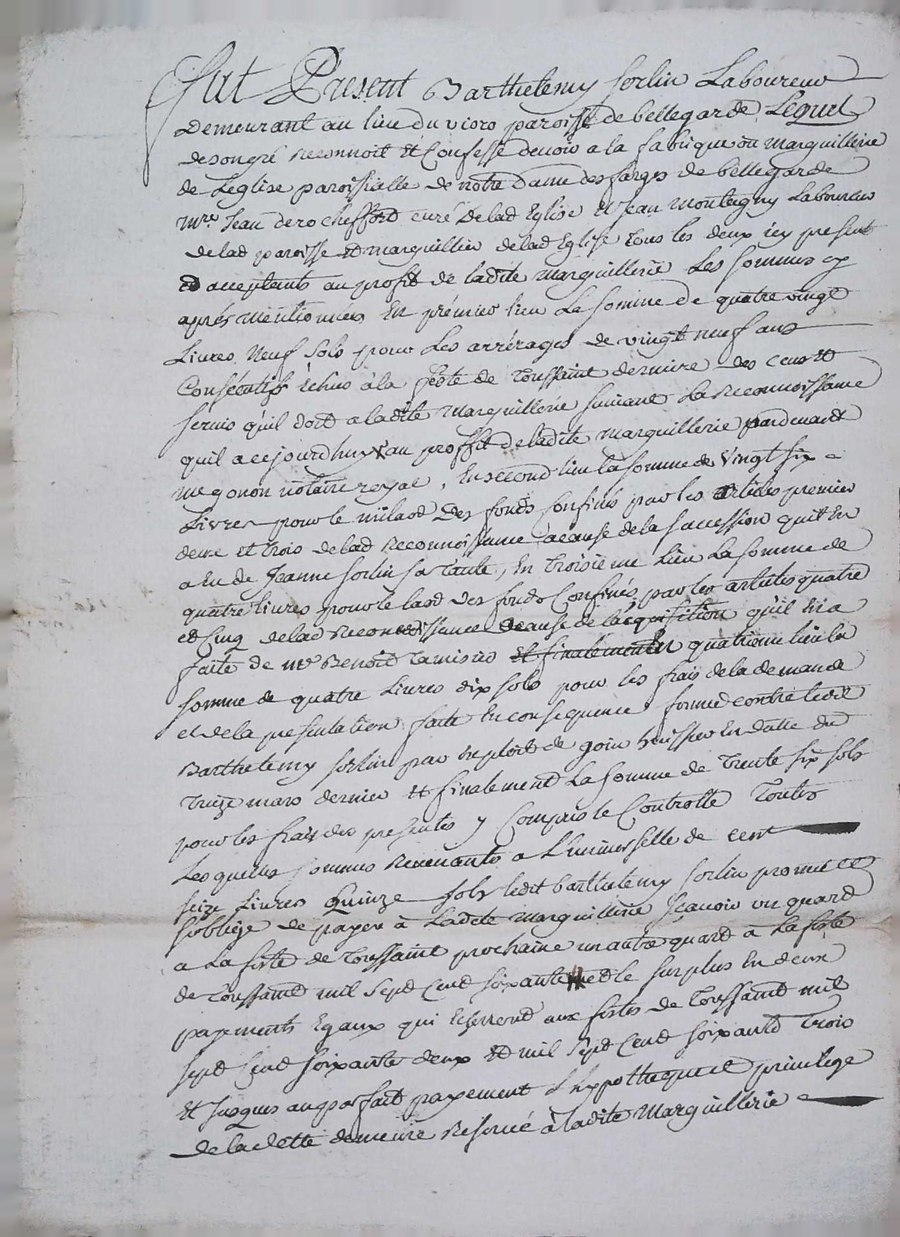 Fut Present Barthelemy Sorlin Laboureur
Demeurant au lieu du paroisse de bellegarde Lequel
de son gré reconnoit et Confesse devoir a la fabrique ou marguillerie
de Leglise paroissialle de notre dame des farges de bellegarde
mre Jean derocheffort curé de lad Eglise et Jean Montagny Laboureur
de lad paroisse et marguillier de lad Eglise tous les deux icy present
et acceptants au profit de ladite marguillerie Les sommes cy
aprés mentionnées En prémier lieu La somme de quatre vingt
Livres Neuf sols pour Les arrérages de vingt neuf ans
Consécutifs échus à la feste de Toussaint derniere des cens et
servis qu'il doit a ladite marguillerie suivant La Reconnoissance
quil a cejourdhuy au proffit de ladite marguillerie pardevant
me gonon notaire royal, En second lieu la somme de vingt six
Livres pour le milaod des fonds Confinés par les articles premier
deux et trois de lad Reconnoissance à cause de la succession quil En
a Eu de Jeanne Sorlin sa tante, En troisieme Lieu La somme de
quatre livres pour le laod des fonds Confinés par les articles quatre
et Cinq de lad Reconnoissance a cause de lacquisition qu'il En a
faite de mre Benoit Et finalement En quatrieme lieu la
somme de quatre Livres dix sols pour les frais de la demande
et de la presentation faite En consequence formée contre ledit
Barthelemy Sorlin par Exploit de goin huissier En datte du
Treize mars dernier et finalement La somme de Trente six sols
pour les frais des presentes y Compris le Controlle Toutes
Lesquelles sommes Revenants a L'universelle de cent
seize Livres Quinze sols ledit Barthelemy Sorlin promet et
soblige de payer à Ladite Marguillerie Scavoir un quard
a La feste de Toussaint prochaine un autre quard à La feste
de Toussaint mil sept Cent soixante et le surplus En deux
payements Egaux qui Echerront aux festes de Toussaint mil
sept Cent soixante deux et mil sept Cent soixante Trois
Et Jusques au parfait payement L'hypotheque et privilege
de la dette demeure Reservé à ladite Marguillerie